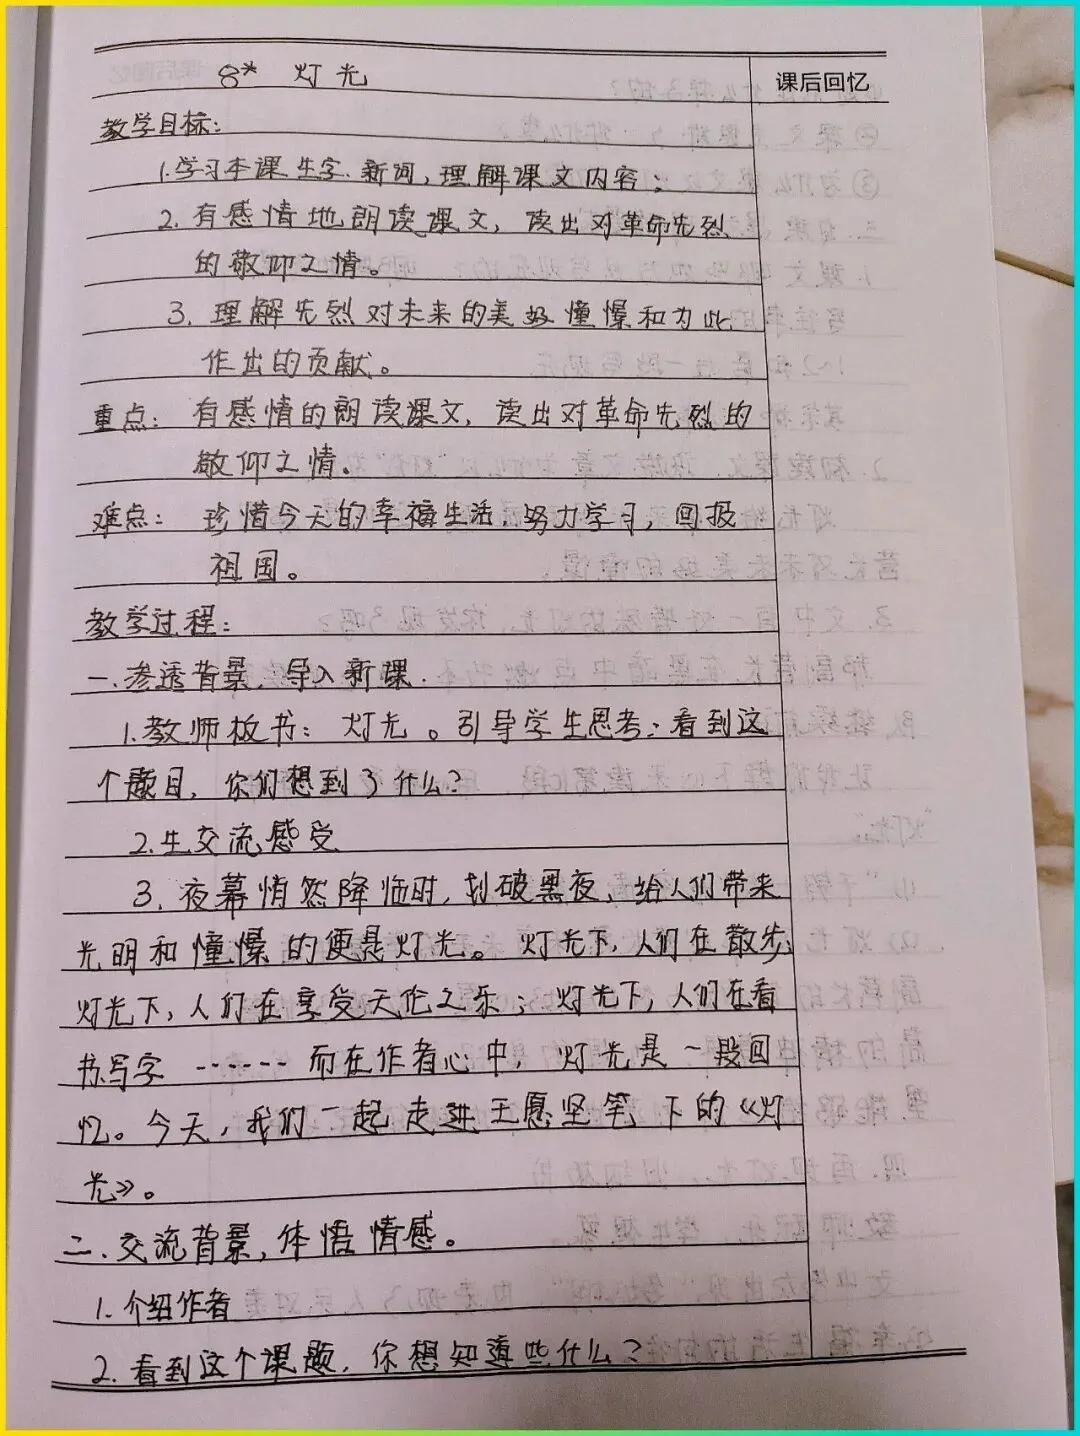 8* 灯光
课后回忆
教学目标:
1.学习本课生字.新词,理解课文内容;
2.有感情地朗读课文,读出对革命先烈
的敬仰之情。
3.理解先烈对未来的美好憧憬和为此
作出的贡献。
重点:有感情的朗读课文,读出对革命先烈的
敬仰之情。
难点:珍惜今天的幸福生活,努力学习,回报
祖国。
教学过程:
一.渗透背景,导入新课.
1.教师板书:灯光。引导学生思考:看到这
个题目,你们想到了什么?
2.生交流感受
3.夜幕悄然降临时,划破黑夜,给人们带来
光明和憧憬的便是灯光。灯光下,人们在散步;
灯光下,人们在享受天伦之乐;灯光下,人们在看
书写字……而在作者心中,灯光是一段回
忆。今天,我们一起走进王愿坚笔下的《灯
光》。
二.交流背景,体悟情感。
1.介绍作者
2.看到这个课题,你想知道些什么?